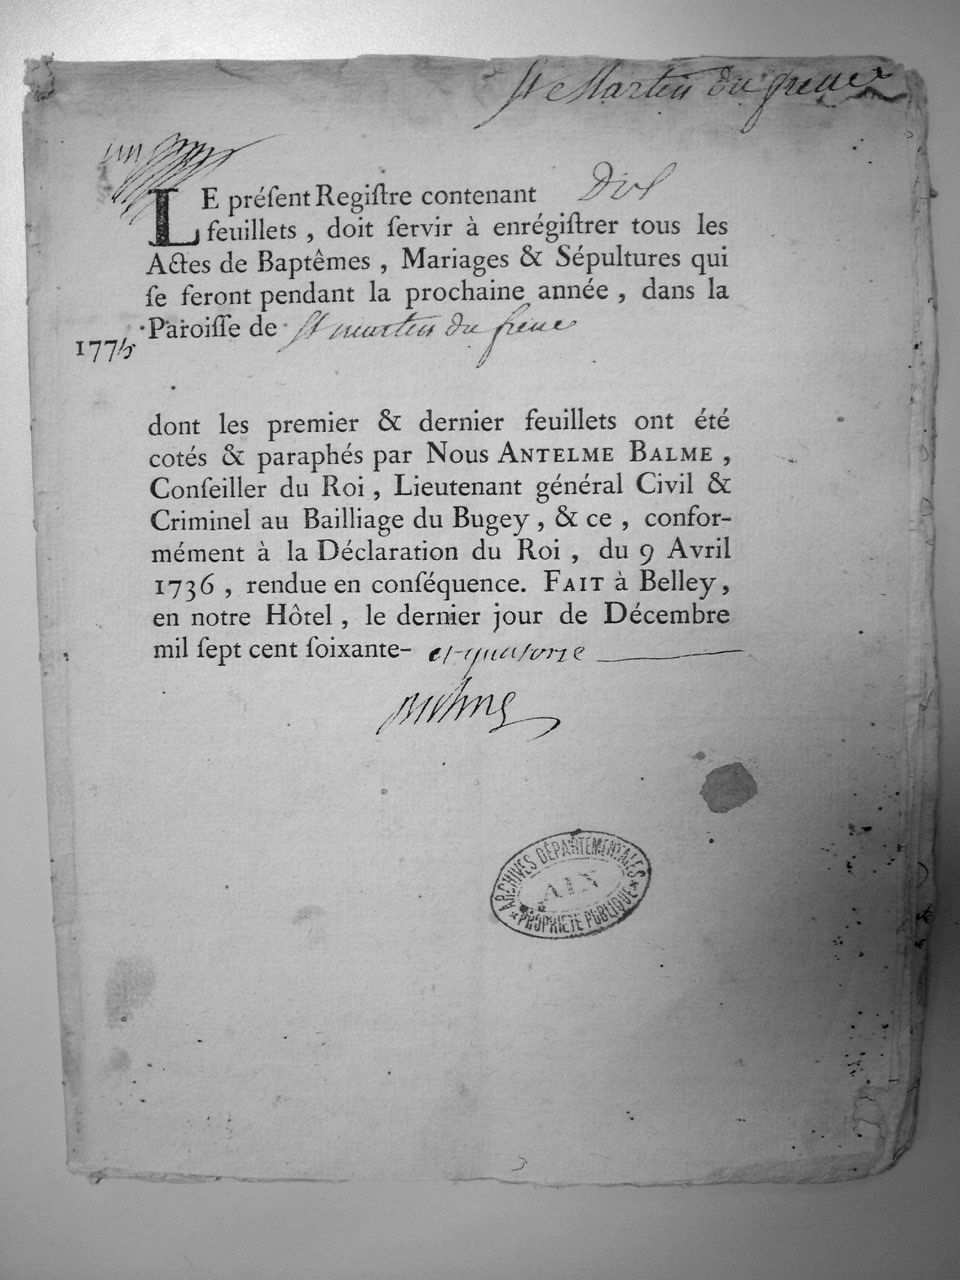 St Martin du frene
un
LE préſent Regiſtre contenant Dix
feuillets, doit ſervir à enrégiſtrer tous les
Actes de Baptêmes, Mariages & Sépultures qui
ſe feront pendant la prochaine année, dans la
Paroiſſe de St martin du frene
1775
dont les premier & dernier feuillets ont été
cotés & paraphés par Nous ANTELME BALME,
Conſeiller du Roi, Lieutenant général Civil &
Criminel au Bailliage du Bugey, & ce, confor-
mément à la Déclaration du Roi, du 9 Avril
1736, rendue en conſéquence. FAIT à Belley,
en notre Hôtel, le dernier jour de Décembre
mil ſept cent ſoixante- et quatorze
Balme
ARCHIVES DÉPARTEMENTALES
AIN
PROPRIÉTÉ PUBLIQUE